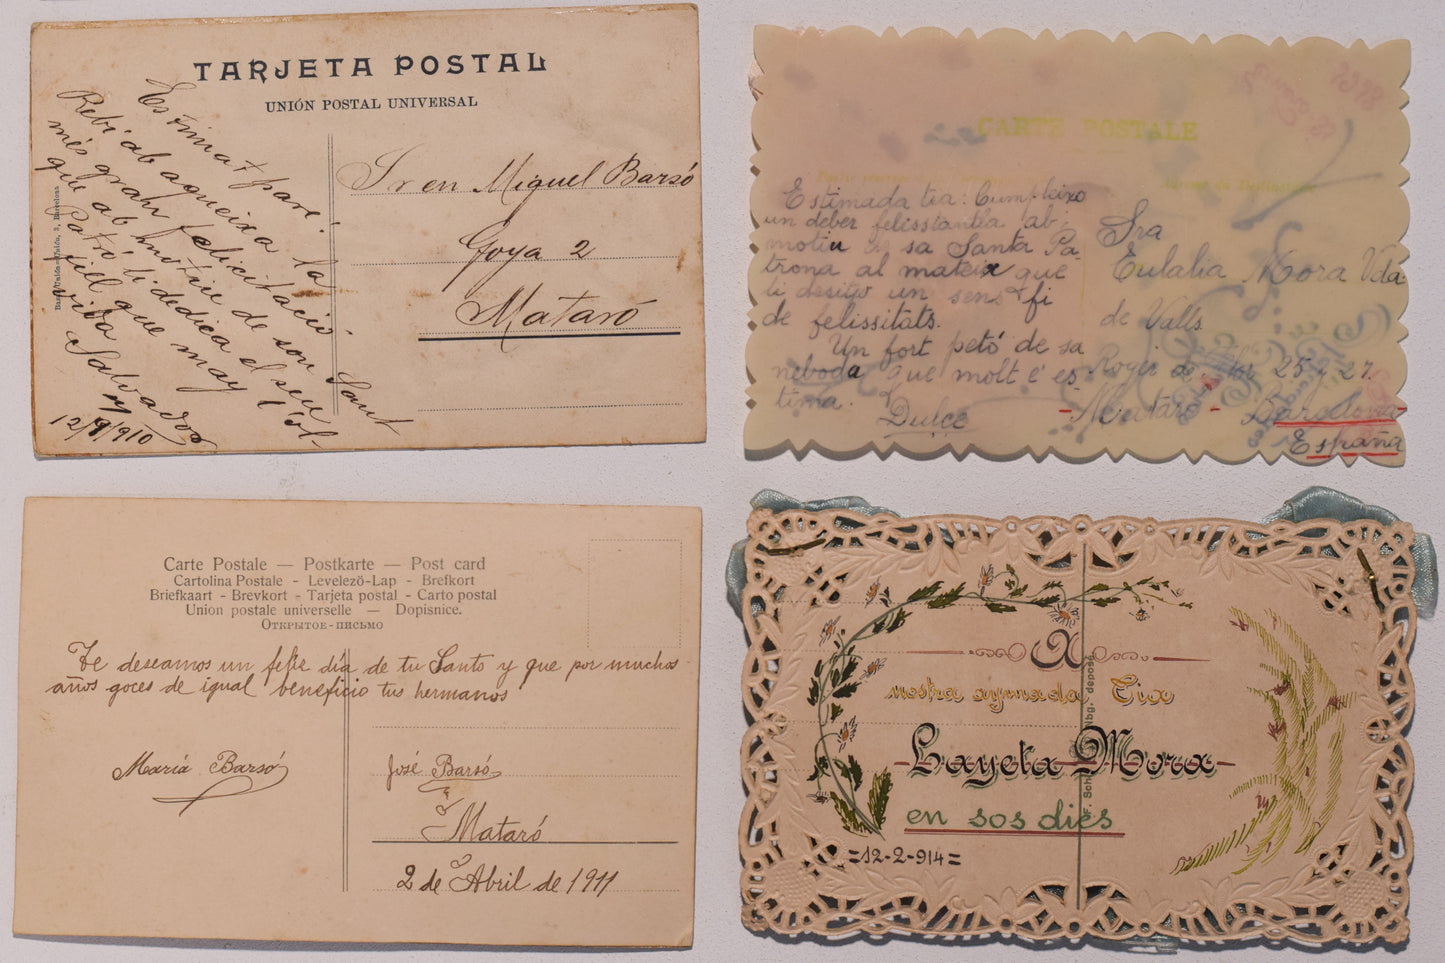 TARJETA POSTAL
UNIÓN POSTAL UNIVERSAL
Estimat pare:
Rebi ab aqueixa la
més gran felicitació
que ab motiu de son Sant
Patró, li dedica el seu
fill que may l'ol-
vida
Salvador
12/9/910
Sr en Miquel Barsó
Goya 2
Mataró
CARTE POSTALE
Estimada tia: Cumpleixo
un deber felissitantla ab
motiu de sa Santa Pa-
trona al mateix que
li desitjo un sens fi
de felissitats.
Un fort petó de sa
neboda que molt l'es-
tima.
Dulce
Sra
Eulalia Mora Vda
de Valls
Roger de Flor 25 y 27
- Mataró - Barcelona
España
Carte Postale — Postkarte — Post card
Cartolina Postale - Levelezö-Lap - Brefkort
Briefkaart - Brevkort - Tarjeta postal - Carto postal
Union postale universelle — Dopisnice.
Открытое-письмо
Te deseamos un felis día de tu Santo y que por muchos
años goces de igual beneficio tus hermanos
María Barsó
José Barsó
Mataró
2 de Abril de 1911
A
nostra aymada Tia
Layeta Mora
en sos dies
=12-2-914=